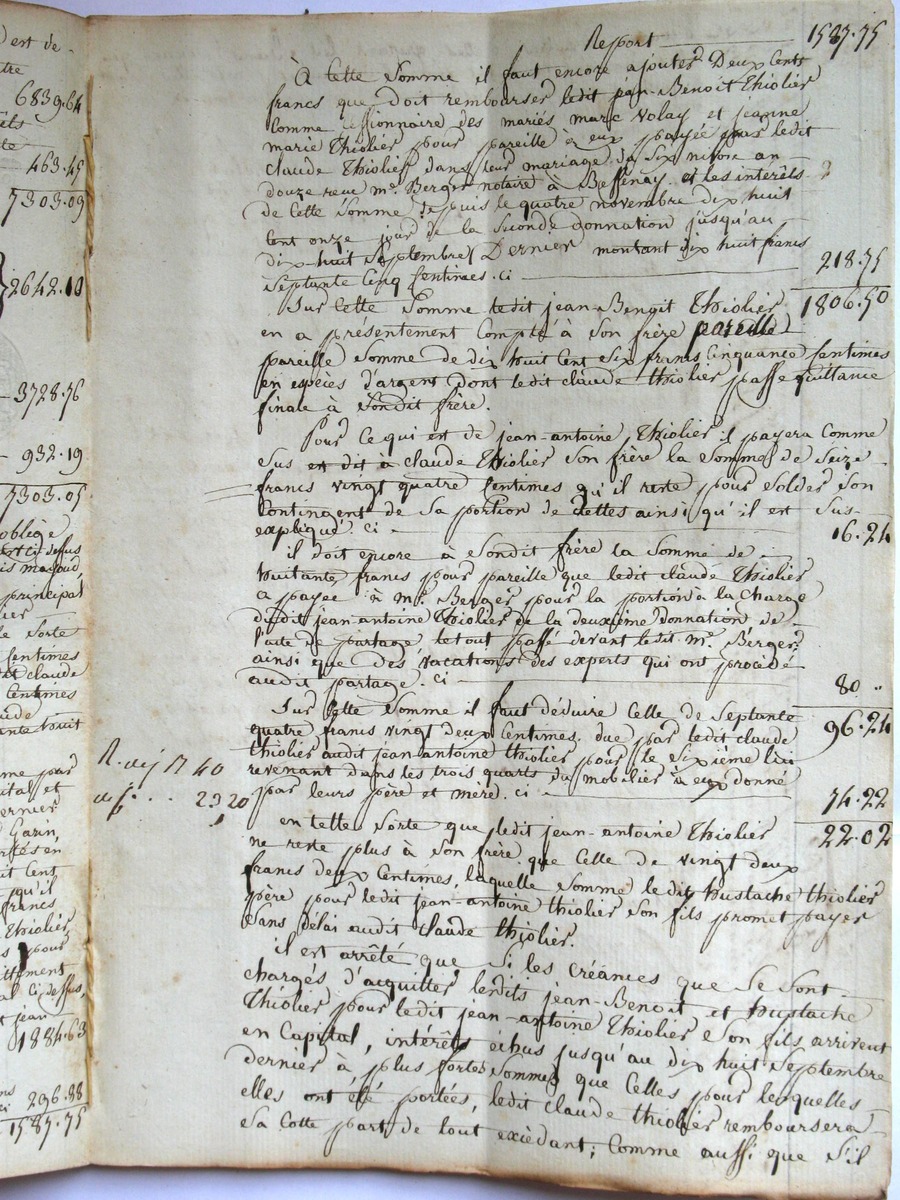 Report 1587.75
À Cette Somme il faut encore ajouter Deux Cents
francs que doit rembourser ledit jean-Benoit Thiolier
Comme Cessionnaire des mariés marc Volay et jeanne
marie Thiolier pour pareille à eux payée par ledit
Claude Thiolier dans leur mariage du Six nivose an
douze reçu me. Berger notaire à Bessenay. et les intérêts
de Cette Somme depuis le quatre novembre dix huit
Cent onze jour de la Seconde donnation jusqu'au
dix-huit Septembre Dernier montant dix huit francs
Septante Cinq Centimes. ci 218.75
Sur Cette Somme ledit jean-Benoit Thiolier 1806.50
en a présentement Compté à Son frère pareille
pareille Somme de dix huit Cent Six francs Cinquante Centimes
en espèces d'argent dont ledit claude thiolier passe quittance
finale à Sondit frère.
Pour Ce qui est de jean-antoine Thiolier il payera Comme
Sus est dit a claude Thiolier Son frère la Somme de Seize
francs vingt quatre Centimes qu'il reste pour Solder Son
Contingent de Sa portion de dettes ainsi qu'il est Sus-
expliqué. Ci 16.24
il doit encore à Sondit frère la Somme de
huitante francs pour pareille que ledit claude Thiolier
a payée à me. Berger pour la portion à la Charge
dudit jean-antoine Thiolier de la deuxième donnation de
l'acte de partage le tout passé devant ledit me. Berger
ainsi que des vacations des experts qui ont procédé
audit partage. Ci 80 "
Sur Cette Somme il faut déduire Celle de Septante 96.24
quatre francs vingt deux Centimes due par ledit claude
Thiolier audit jean-antoine thiolier pour le Sixième lui
revenant dans les trois quarts du mobilier à eux donné
par leurs père et mère. ci 74.22
en telle Sorte que ledit jean-antoine Thiolier 22.02
ne reste plus à Son frère que Celle de vingt deux
francs deux Centimes, laquelle Somme ledit Eustache thiolier
père pour ledit jean-antoine thiolier Son fils promet payer
Sans délai audit Claude thiolier.
il est arrêté que Si les Créances que Se Sont
chargés d'acquitter lesdits jean-Benoit et Eustache
Thiolier pour ledit jean-antoine Thiolier Son fils arrivent
en Capital, intérêts échus jusqu'au dix huit Septembre
dernier à plus fortes Sommes que Celles pour lesquelles
elles ont été portées, ledit claude thiolier remboursera
Sa Cotte part de tout excédant; Comme aussi que S'il
17 40
23 20
6839.64
463.45
7303.09
2642.10
3728.76
932.19
7303.05
oblige
principal
Sorte
Centimes
claude
Centimes
dernier
Garin
Cent
qu'il
francs
Thiolier
pour
Ci dessus,
jean
1884.63
296.88
1587.75